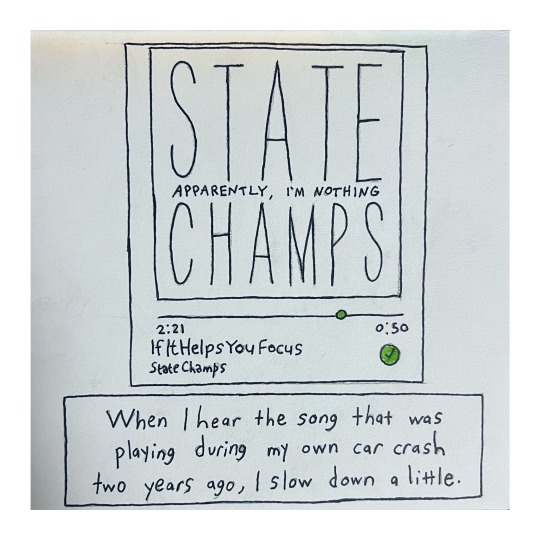 STATE
APPARENTLY, I'M NOTHING
CHAMPS
2:21 0:50
If It Helps You Focus
State Champs
When I hear the song that was
playing during my own car crash
two years ago, I slow down a little.